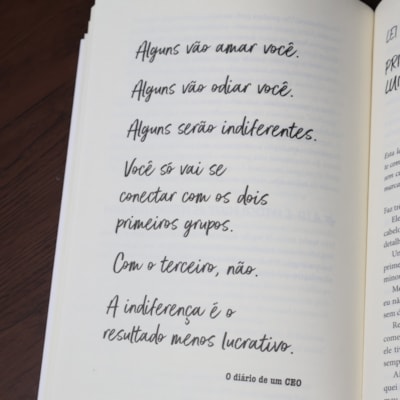 Alguns vão amar você.
Alguns vão odiar você.
Alguns serão indiferentes.
Você só vai se
conectar com os dois
primeiros grupos.
Com o terceiro, não.
A indiferença é o
resultado menos lucrativo.
O diário de um CEO
LEI